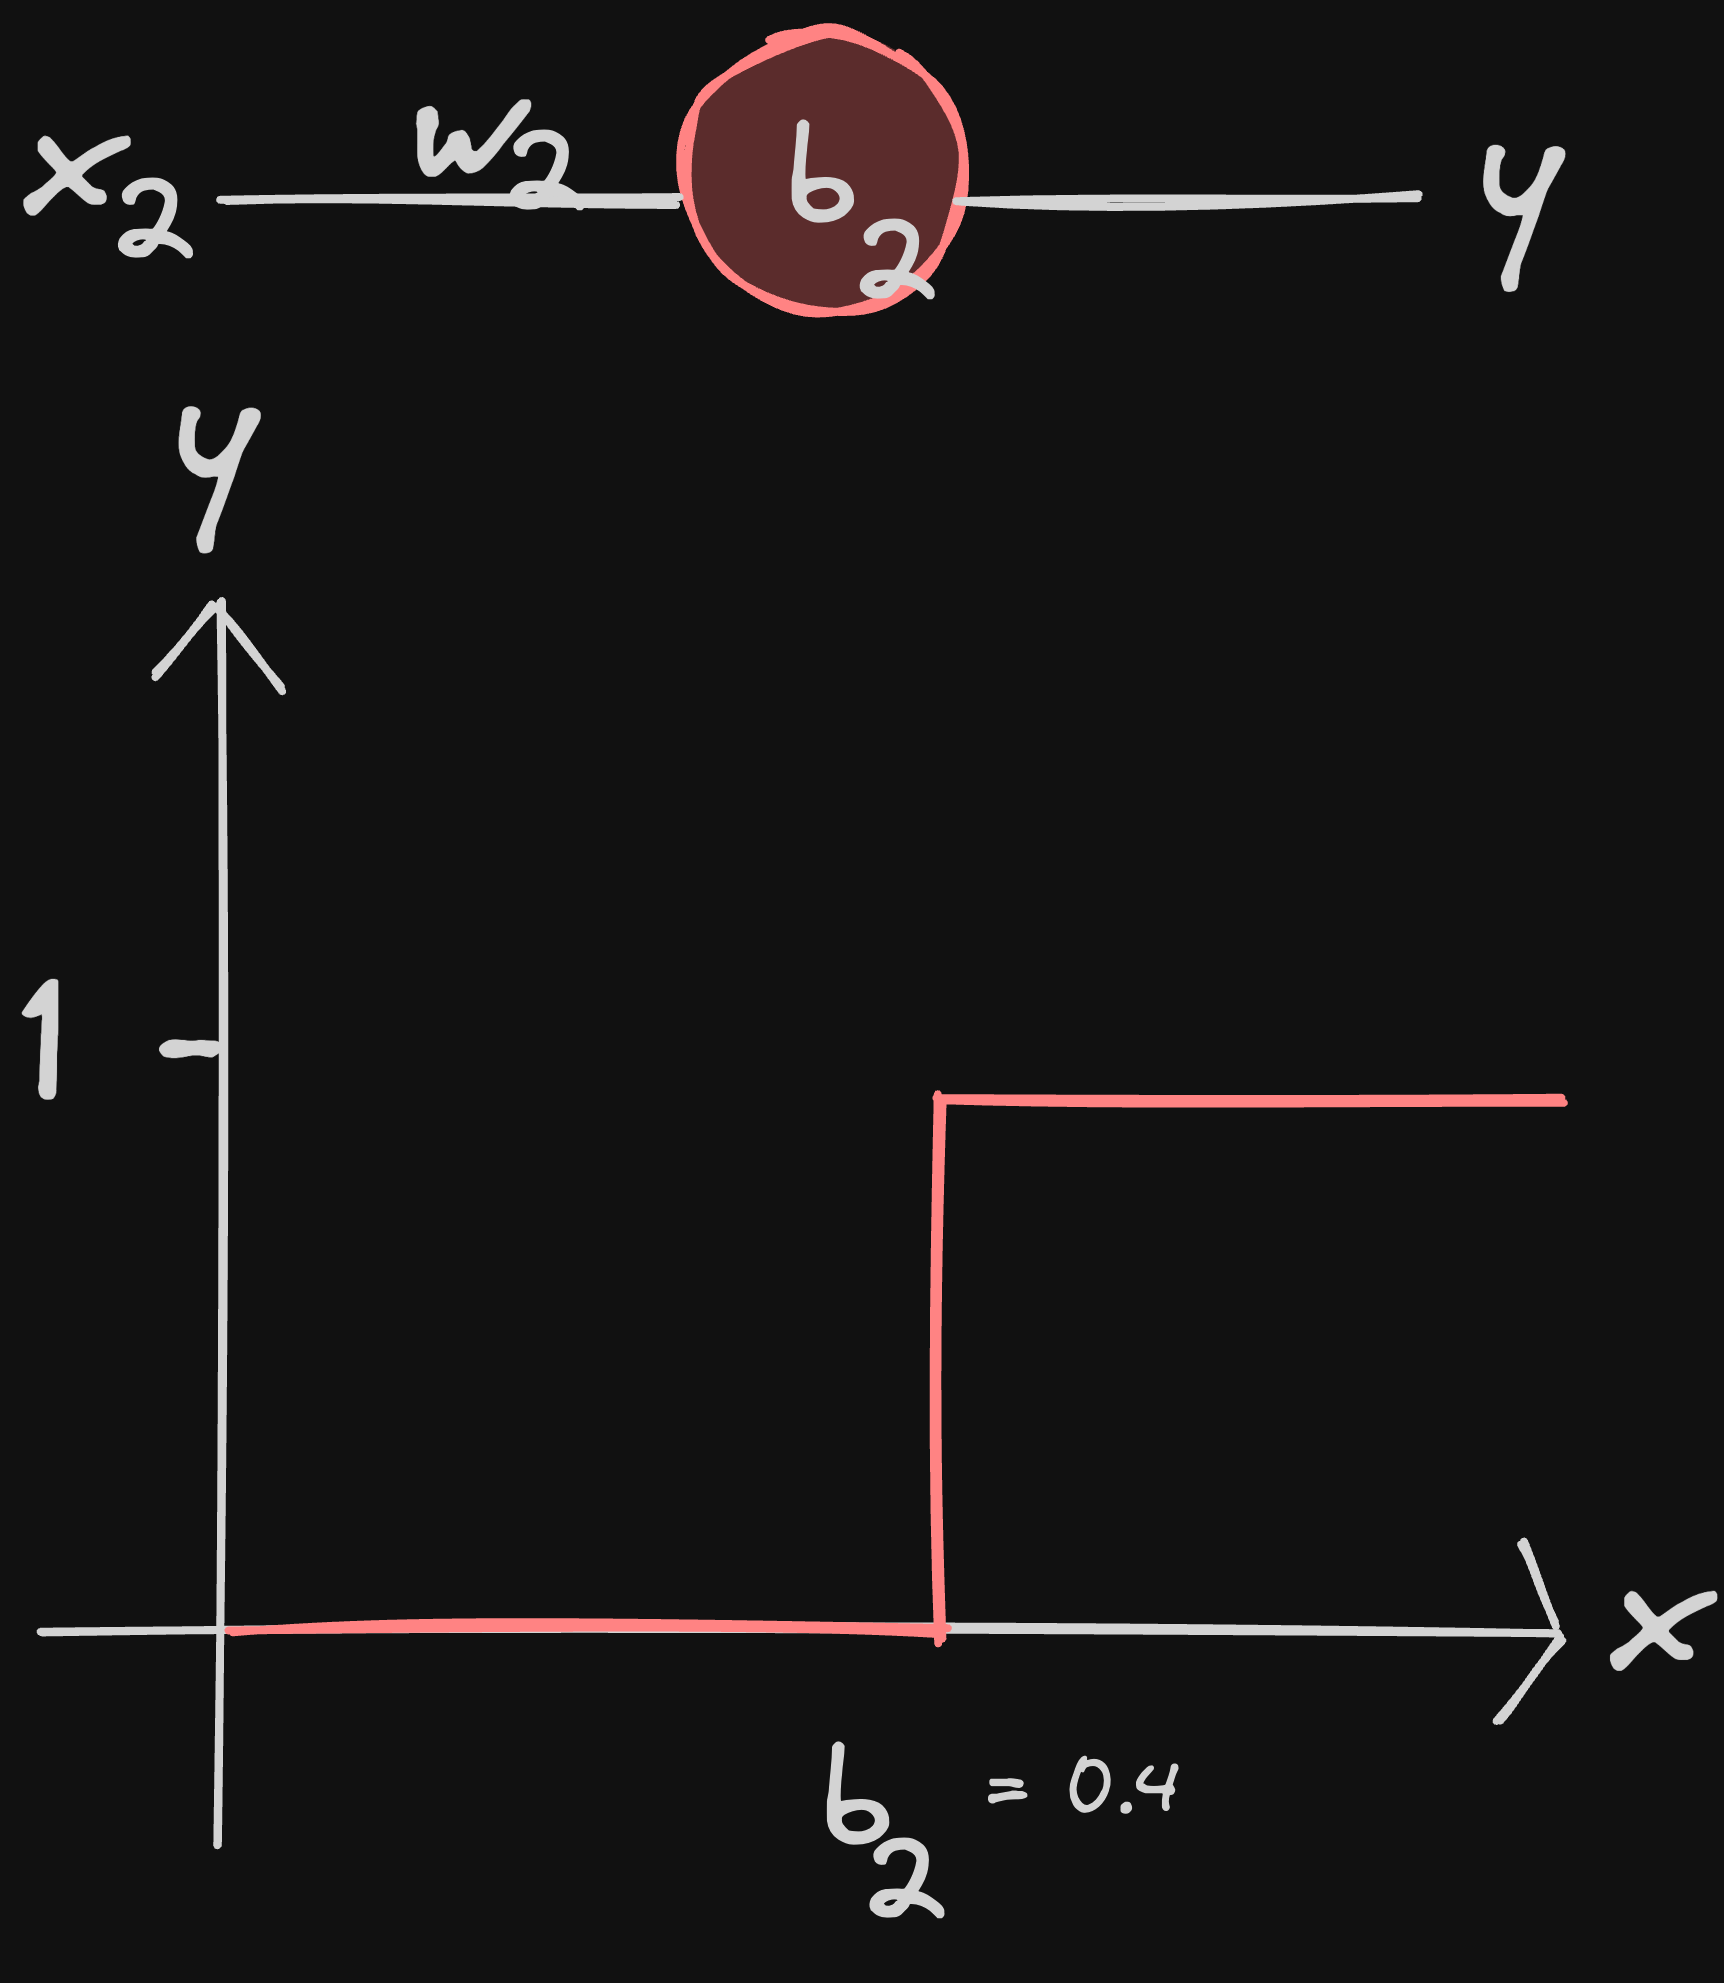 x₂ w₂ b₂ y
y
1
x
b₂ = 0.4